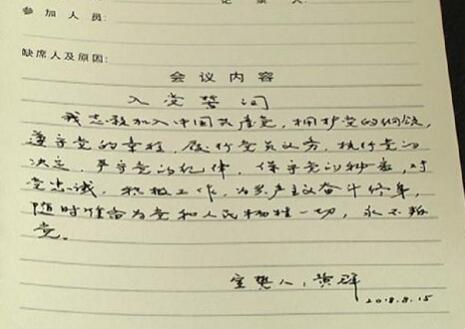 记录人:
参加人员:
缺席人及原因:
会议内容
入党誓词
我志愿加入中国共产党,拥护党的纲领,
遵守党的章程,履行党员义务,执行党的
决定,严守党的纪律,保守党的秘密,对
党忠诚,积极工作,为共产主义奋斗终身,
随时准备为党和人民牺牲一切,永不叛
党。
宣誓人:黄群
2018.8.15